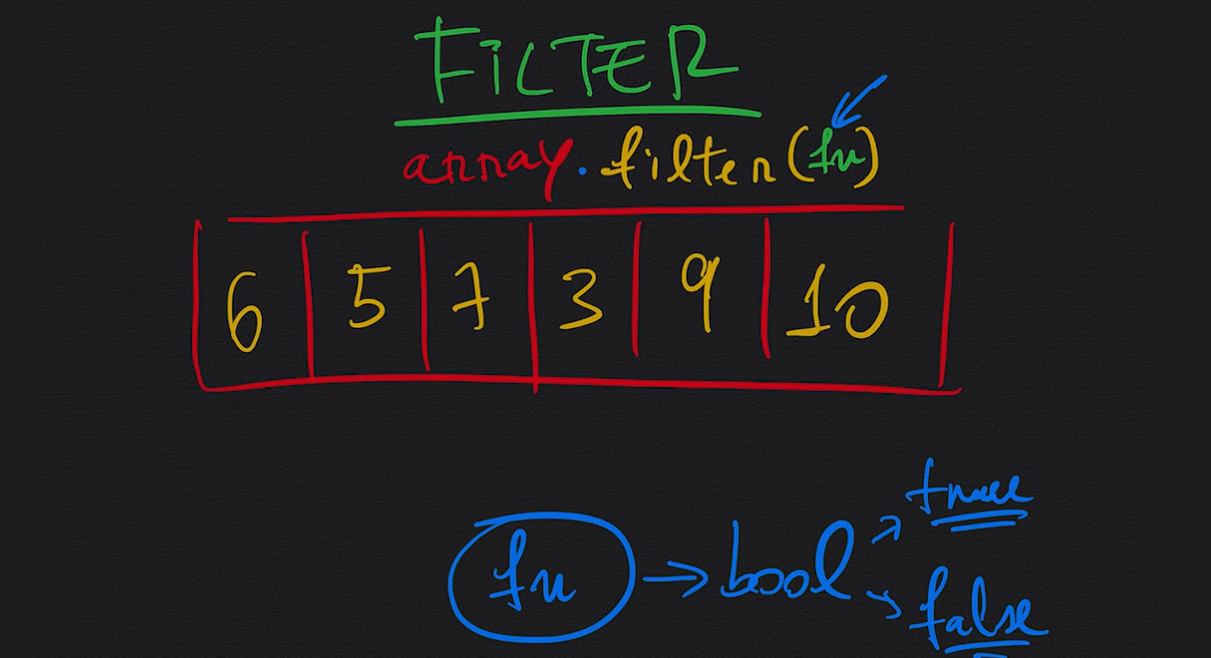 FiLTER
array.filter(fn)
6 5 7 3 9 10
true
fn → bool
false